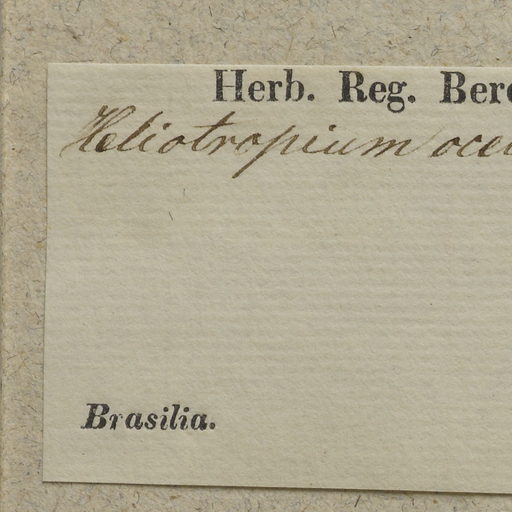 Herb. Reg. Bero
Heliotropium oce
Brasilia.